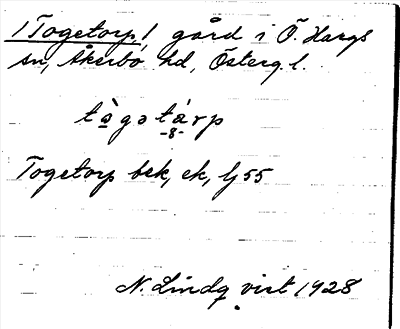 /Togetorp/ gård i Ö. Hargs
sn, Åkerbo hd, Österg. l.
tɷ̀gətárp
-8-
Togetorp bek, ek, lj 55
N. Lindq vist 1928